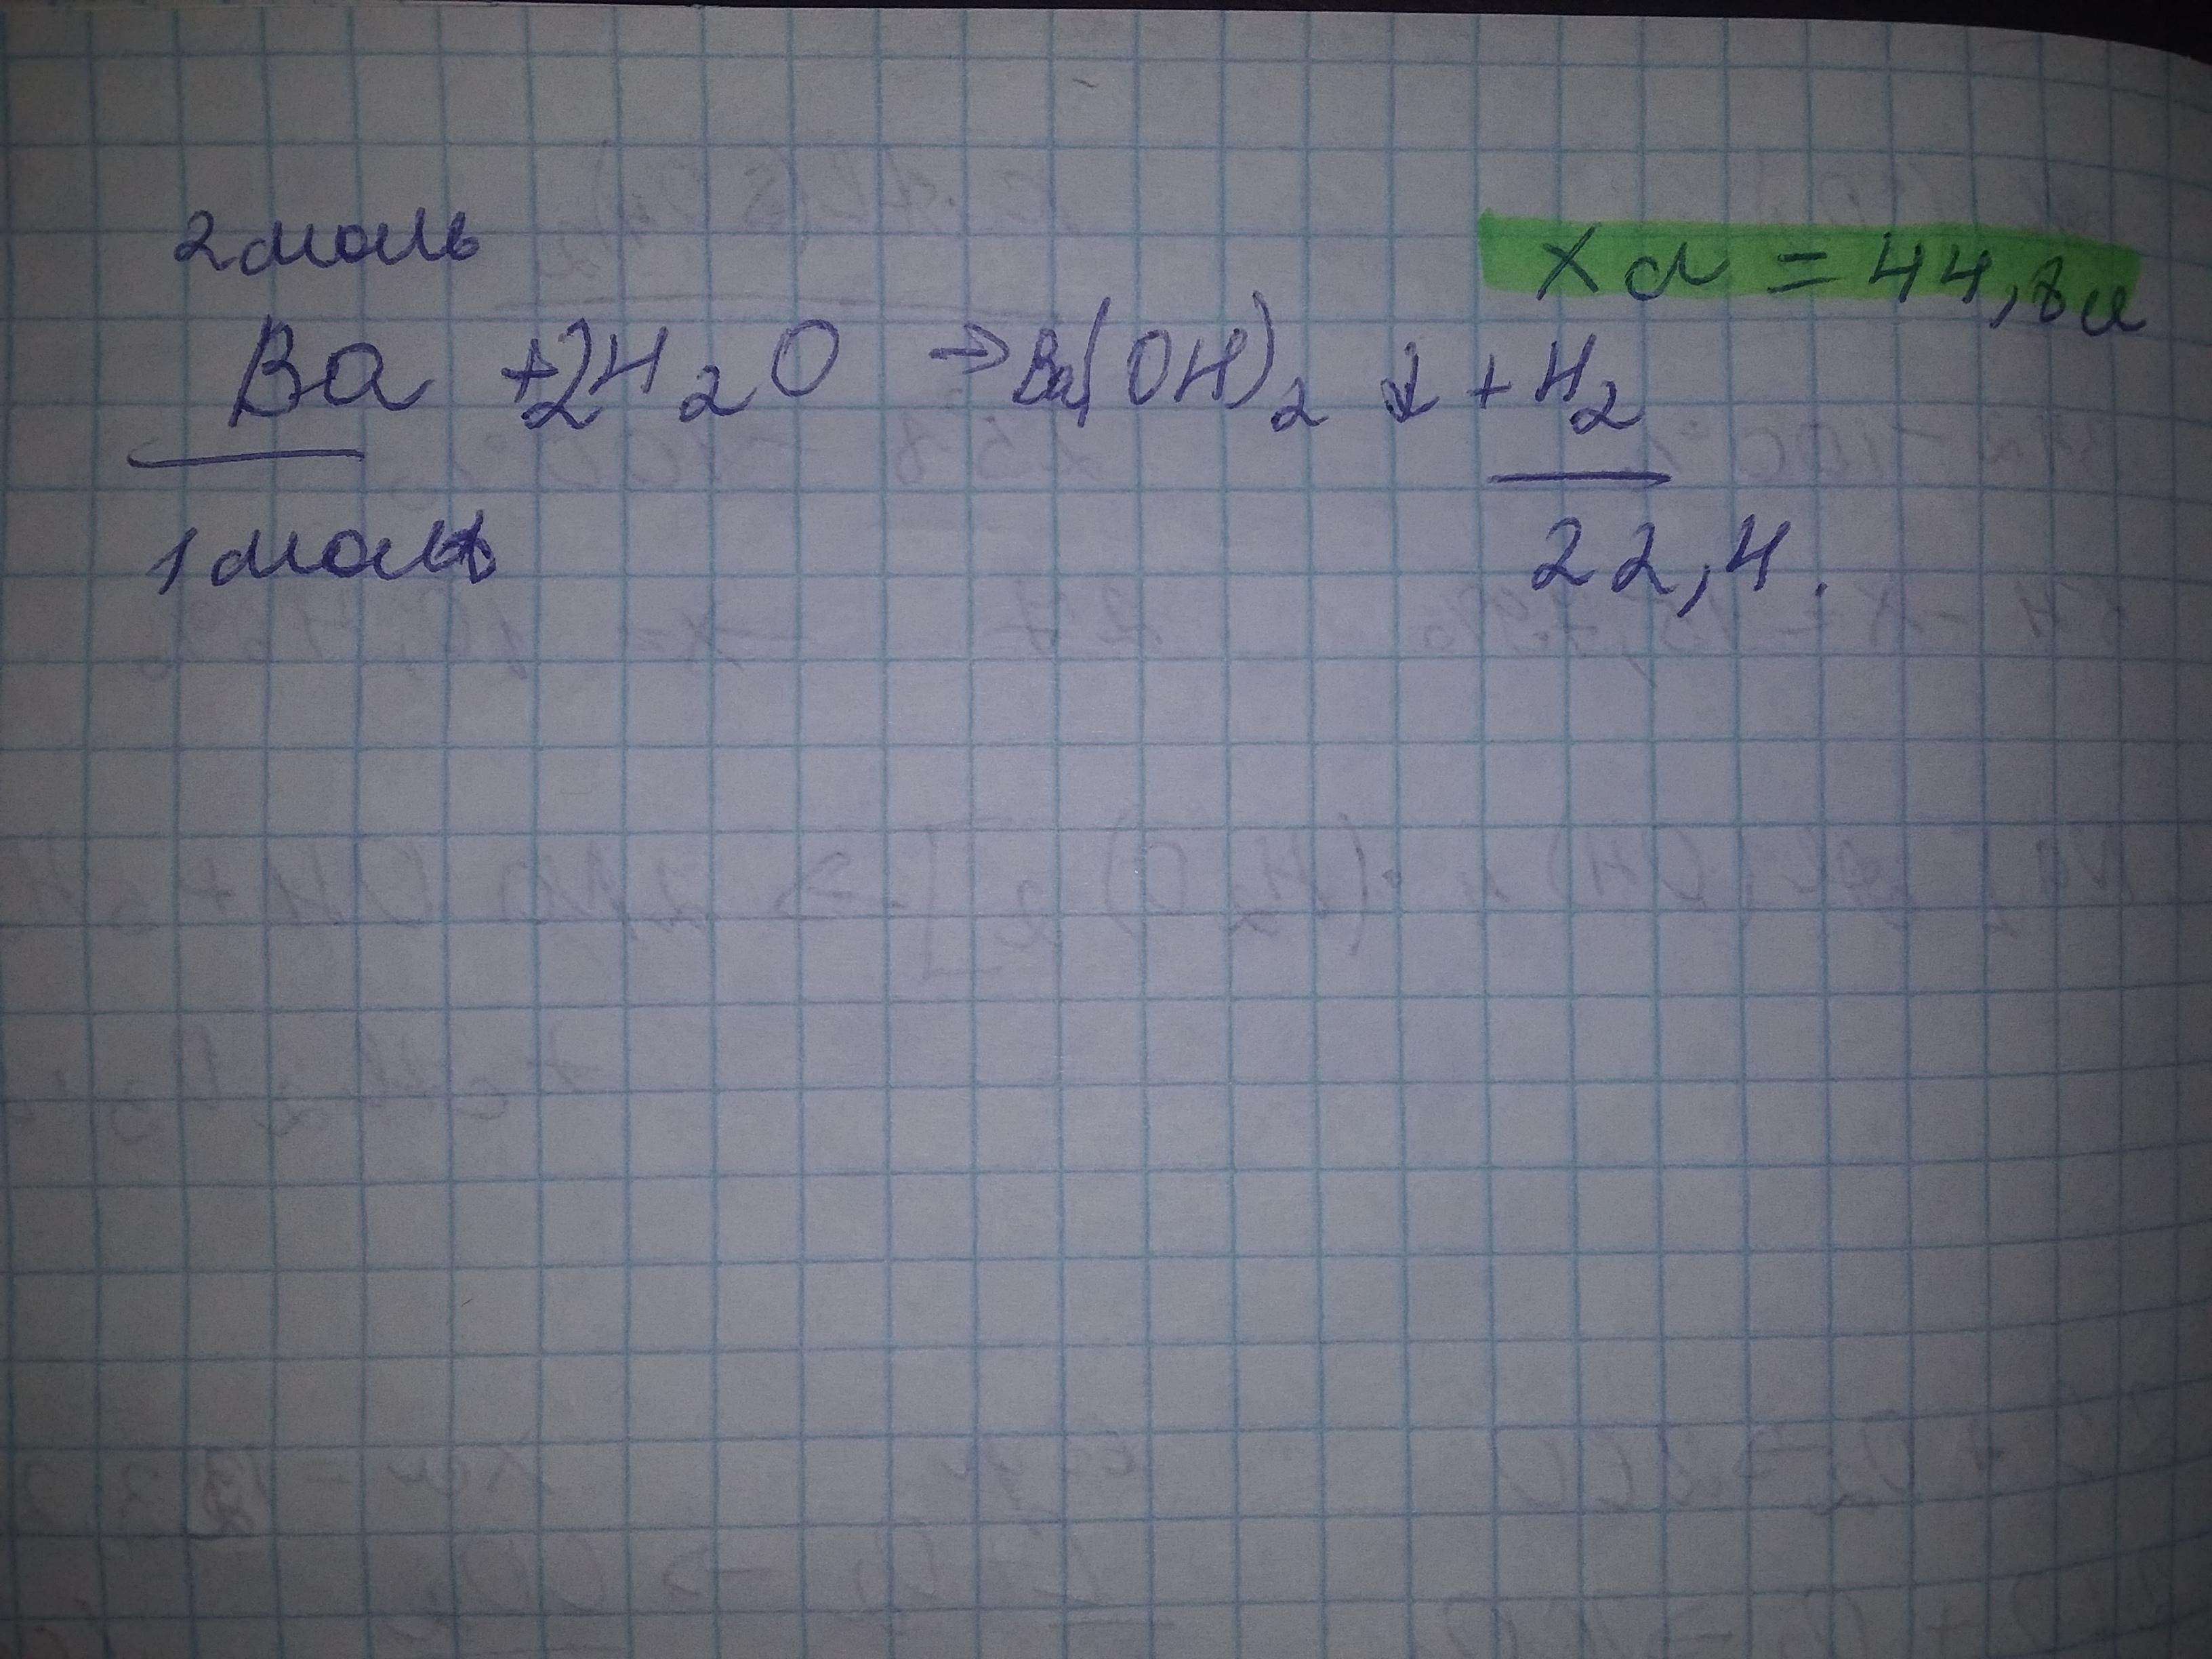 2моль
х л = 44,8л
Ba +2H2O → Ba(OH)2 ↓ + H2
1моль
22,4.